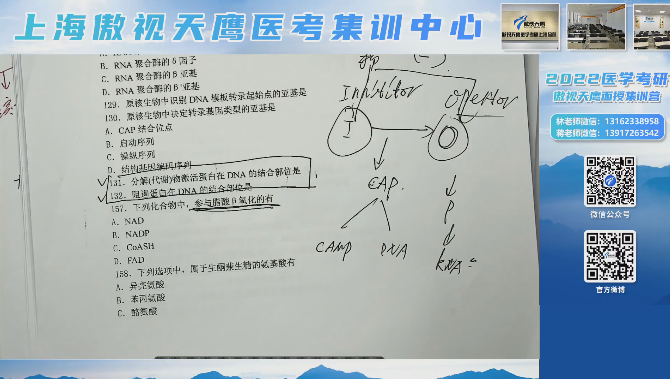 上海傲视天鹰医考集训中心
B. RNA 聚合酶的 δ 因子
C. RNA 聚合酶的 β 亚基
D. RNA 聚合酶的 β′ 亚基
129. 原核生物中识别 DNA 模板转录起始点的亚基是
130. 原核生物中决定转录基因类型的亚基是
A. CAP 结合位点
B. 启动序列
C. 操纵序列
D. 结构基因编码序列
131. 分解(代谢)物激活蛋白在 DNA 的结合部位是
132. 阻遏蛋白在 DNA 的结合部位是
157. 下列化合物中,参与脂酸 β 氧化的有
A. NAD
B. NADP
C. CoASH
D. FAD
158. 下列选项中,属于生酮兼生糖的氨基酸有
A. 异亮氨酸
B. 苯丙氨酸
C. 酪氨酸
(-)
Inhibitor
I
CAP.
CAMP
DNA
P
2022医学考研
傲视天鹰面授集训营
林老师微信：13162338958
蒋老师微信：13917263542
微信公众号
官方微博